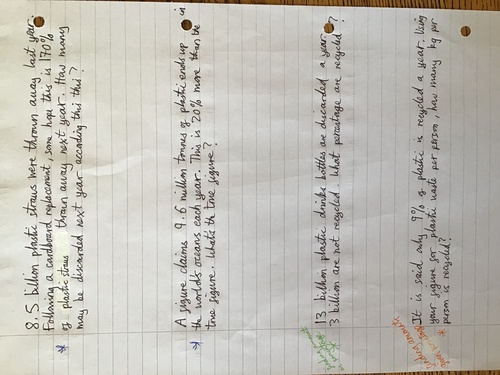 8.5 billion plastic straws were thrown away last year.
Following a cardboard replacement, some hope this is 170%
of plastic straws thrown away next year. How many
may be discarded next year according this this?
A figure claims 9.6 million tonnes of plastic ends up in
the world's oceans each year. This is 20% more than the
true figure. What's the true figure?
13 billion plastic drinks bottles are discarded a year.
3 billion are not recycled. What percentage are recycled?
It is said only 9% of plastic is recycled a year. Using
your figure for plastic waste per person, how many kg per
person is recycled?
finding amounts